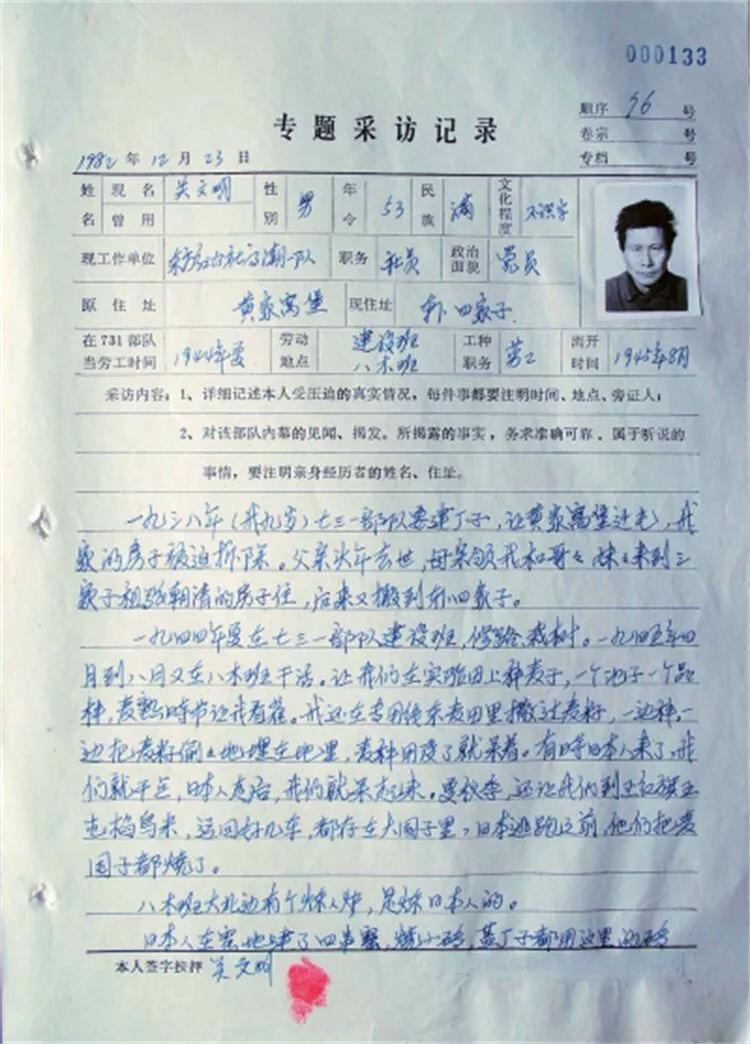 000133
顺序 76 号
专题采访记录
卷宗 号
1982 年 12 月 23 日
专档 号
姓名 现名 关文明 性别 男 年令 53 民族 满 文化程度 不识字
曾用
现工作单位 东方红公社高潮一队 职务 社员 政治面貌 党员
原住址 黄家窝堡 现住址 东四家子
在731部队当劳工时间 1944年夏 劳动地点 建设班 八木班 工种职务 劳工 离开时间 1945年8月
采访内容：1、详细记述本人受压迫的真实情况，每件事都要注明时间、地点、旁证人；
2、对该部队内幕的见闻、揭发。所揭露的事实，务求准确可靠。属于听说的
事情，要注明亲身经历者的姓名、住址。
一九三八年（我九岁）七三一部队要建丁子，让黄家窝堡迁走，我
家的房子被迫拆除。父亲次年去世，母亲领我和哥々妹々来到三
家子租张朝清的房子住，后来又搬到东四家子。
一九四四年夏在七三一部队建设班，修路、栽树。一九四五年四
月到八月又在八木班干活。让我们在实验田上种麦子，一个池子一个品
种，麦熟时节让我看雀。我还在专用传染麦田里撒过麦籽，一边种一
边把麦籽倒上地埋在地里，麦种用没了就呆着。有时日本人来了，我
们就干点，日本人走后，我们就呆起来。夏秋季，还让我们到正红旗五
屯掐乌米，运回好几车，都存在大囤子里，日本逃跑之前，他们把麦
囤子都烧了。
八木班大北边有个炼人炉，是炼日本人的。
日本人在 地建了四串窑，烧小砖，盖丁子都用这里的砖
本人签字按押 关文明